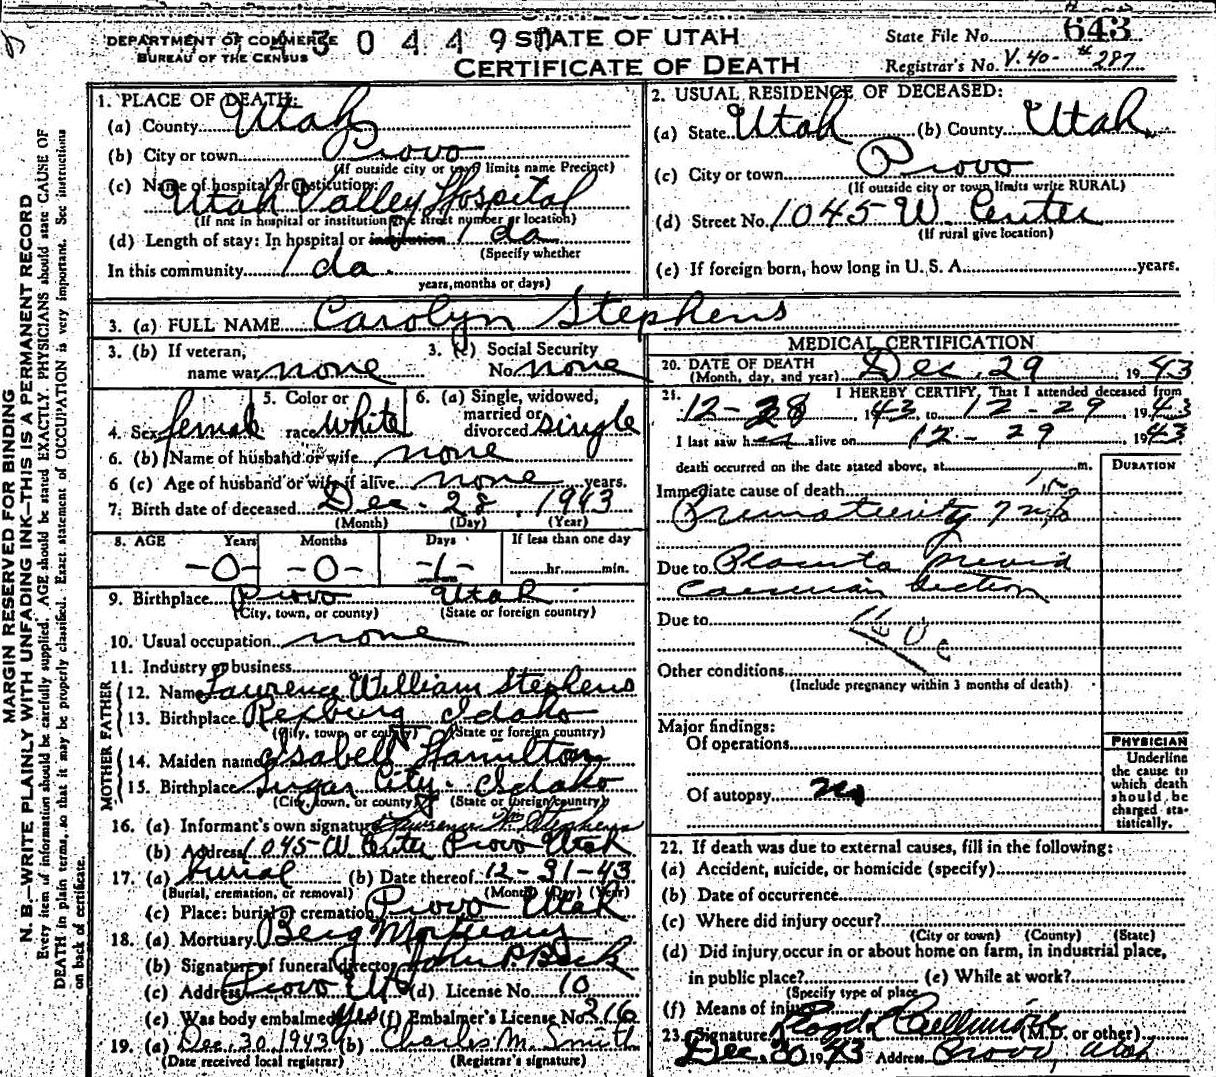 DEPARTMENT OF COMMERCE
BUREAU OF THE CENSUS
4 3 0 4 4 9 0
STATE OF UTAH
CERTIFICATE OF DEATH
State File No. 643
Registrar's No. V. 40- # 287
MARGIN RESERVED FOR BINDING
N. B.—WRITE PLAINLY WITH UNFADING INK—THIS IS A PERMANENT RECORD
Every item of information should be carefully supplied. AGE should be stated EXACTLY. PHYSICIANS should state CAUSE OF
DEATH in plain terms, so that it may be properly classified. Exact statement of OCCUPATION is very important. See instructions
on back of certificate.
1. PLACE OF DEATH:
(a) County Utah
(b) City or town Provo
(If outside city or town limits name Precinct)
(c) Name of hospital or institution:
Utah Valley Hospital
(If not in hospital or institution give street number or location)
(d) Length of stay: In hospital or institution 1 da
(Specify whether
In this community 1 da.
years, months or days)
2. USUAL RESIDENCE OF DECEASED:
(a) State Utah (b) County Utah
(c) City or town Provo
(If outside city or town limits write RURAL)
(d) Street No. 1045 W. Center
(If rural give location)
(e) If foreign born, how long in U. S. A. years.
3. (a) FULL NAME Carolyn Stephens
3. (b) If veteran,
name war none
3. (c) Social Security
No. none
4. Sex female
5. Color or
race White
6. (a) Single, widowed,
married or
divorced single
6. (b) Name of husband or wife none
6 (c) Age of husband or wife if alive none years.
7. Birth date of deceased Dec. 28, 1943
(Month) (Day) (Year)
8. AGE Years Months Days If less than one day
-0- -0- -1- hr. min.
9. Birthplace Provo Utah
(City, town, or county) (State or foreign country)
10. Usual occupation none
11. Industry or business
FATHER
12. Name Lawrence William Stephens
13. Birthplace Rexburg Idaho
(City, town or county) (State or foreign country)
MOTHER
14. Maiden name Isabell Hamilton
15. Birthplace Sugar City, Idaho
(City, town, or county) (State or foreign country)
16. (a) Informant's own signature Lawrence Wm Stephens
(b) Address 1045 W Center Provo Utah
17. (a) Burial (b) Date thereof 12-31-43
(Burial, cremation, or removal) (Month) (Day) (Year)
(c) Place: burial or cremation Provo Utah
18. (a) Mortuary Berg Mortuary
(b) Signature of funeral director John P. Beck
(c) Address Provo Ut (d) License No. 10
(e) Was body embalmed Yes (f) Embalmer's License No. 316
19. (a) Dec. 30, 1943 (b) Charles M. Smith
(Date received local registrar) (Registrar's signature)
MEDICAL CERTIFICATION
20. DATE OF DEATH
(Month, day, and year) Dec. 29, 1943
21. I HEREBY CERTIFY, That I attended deceased from
12-28 1943, to 12-29 1943
I last saw h alive on 12-29 1943
death occurred on the date stated above, at m.
DURATION
Immediate cause of death
Prematurity 7
Due to Placenta previa
Caesarian Section
Due to
Other conditions
(Include pregnancy within 3 months of death)
Major findings:
Of operations
Of autopsy no
PHYSICIAN
Underline
the cause to
which death
should be
charged sta-
tistically.
22. If death was due to external causes, fill in the following:
(a) Accident, suicide, or homicide (specify)
(b) Date of occurrence
(c) Where did injury occur?
(City or town) (County) (State)
(d) Did injury occur in or about home on farm, in industrial place,
in public place? (e) While at work?
(Specify type of place
(f) Means of injury
23. Signature Cullimore (M.D. or other)
Dec. 30 1943 Address Provo, Utah